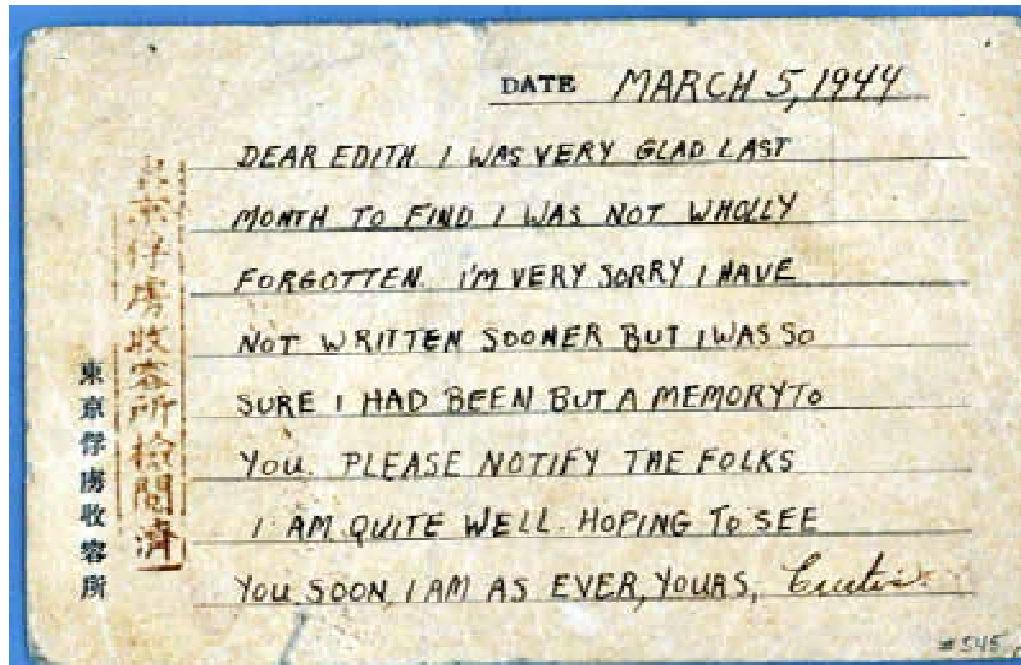 DATE MARCH 5, 1944
DEAR EDITH I WAS VERY GLAD LAST
MONTH TO FIND I WAS NOT WHOLLY
FORGOTTEN. I'M VERY SORRY I HAVE
NOT WRITTEN SOONER BUT I WAS SO
SURE I HAD BEEN BUT A MEMORY TO
YOU. PLEASE NOTIFY THE FOLKS
I AM QUITE WELL. HOPING TO SEE
YOU SOON, I AM AS EVER, YOURS, Curtis.
東京俘虜收容所檢閲濟
東京俘虜收容所
#545